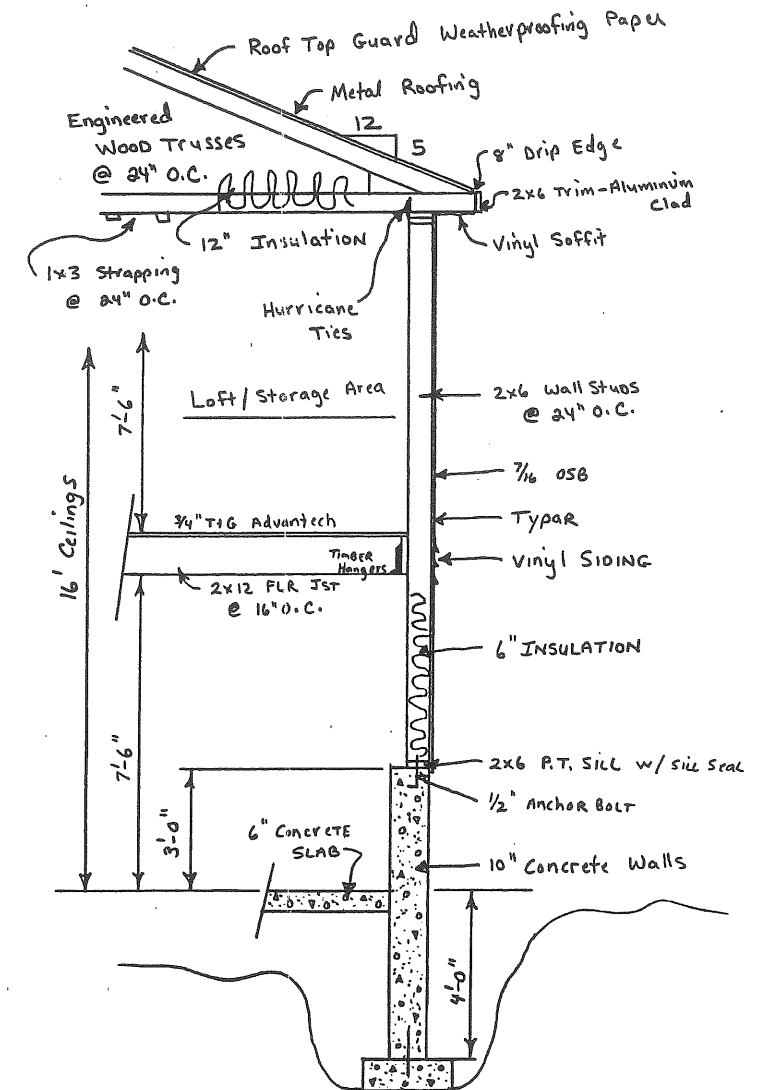 Roof Top Guard Weatherproofing Paper
Metal Roofing
Engineered
Wood Trusses
@ 24" O.C.
12
5
8" Drip Edge
2x6 Trim-Aluminum
Clad
12" Insulation
Vinyl Soffit
1x3 Strapping
@ 24" O.C.
Hurricane
Ties
7'-6"
Loft/Storage Area
2x6 Wall Studs
@ 24" O.C.
16' Ceilings
7/16 OSB
3/4" T+G Advantech
Typar
Timber
Hangers
Vinyl SIDING
2x12 FLR JST
@ 16" O.C.
6" INSULATION
7'-6"
2x6 P.T. Sill w/ Sill Seal
1/2" Anchor Bolt
3'-0"
6" Concrete
Slab
10" Concrete Walls
4'-0"